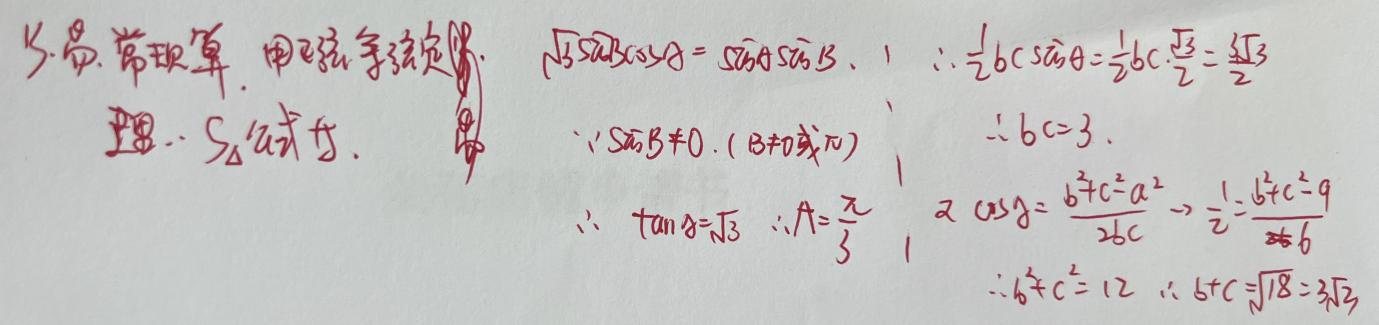 15.易.常规算.用正弦余弦定
理..S△公式形.
√3sinBcosA=sinAsinB.
∵sinB≠0.(B≠0或π)
∴ tanA=√3 ∴A=π/3
∴1/2bcsinA=1/2bc·√3/2=3√3/2
∴bc=3.
又 cosA=(b²+c²-a²)/2bc→1/2=(b²+c²-9)/6
∴b²+c²=12 ∴b+c=√18=3√2